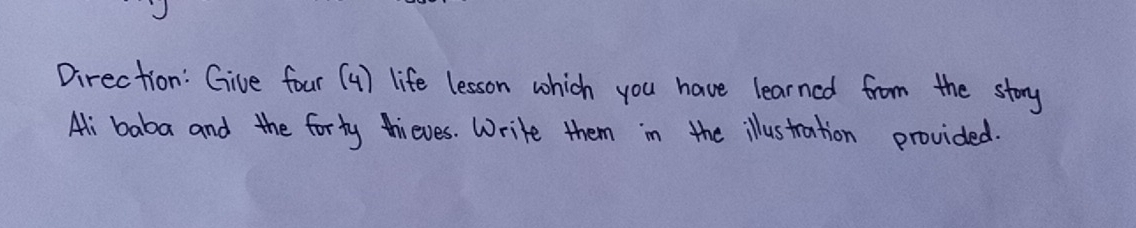 Direction: Give four (4) life lesson which you have learned from the story
Ali baba and the forty thieves. Write them in the illustration provided.